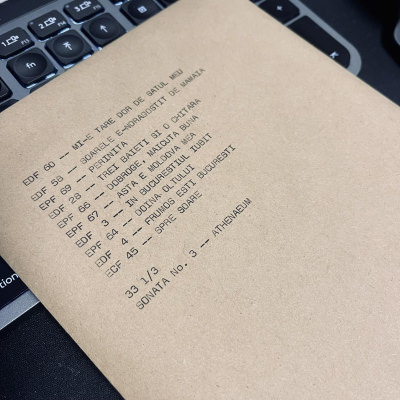 EDF 60 -- MI-E TARE DOR DE SATUL MEU
EDF 58 -- SOARELE E-NDRAGOSTIT DE MAMAIA
EPF 69 -- PERINITA
EDF 28 -- TREI BAIETI SI O CHITARA
EPF 66 -- DOBROGE, MAICUTA BUNA
EPF 67 -- ASTA E MOLDOVA MEA
EDF 3 -- IN BUCURESTIUL IUBIT
EPF 64 -- DOINA OLTULUI
EDF 4 -- FRUMOS ESTI BUCURESTI
ECF 45 -- SPRE SOARE
33 1/3
SONATA No. 3 -- ATHENAEUM
1
2
3
F11
F12
fn
tion